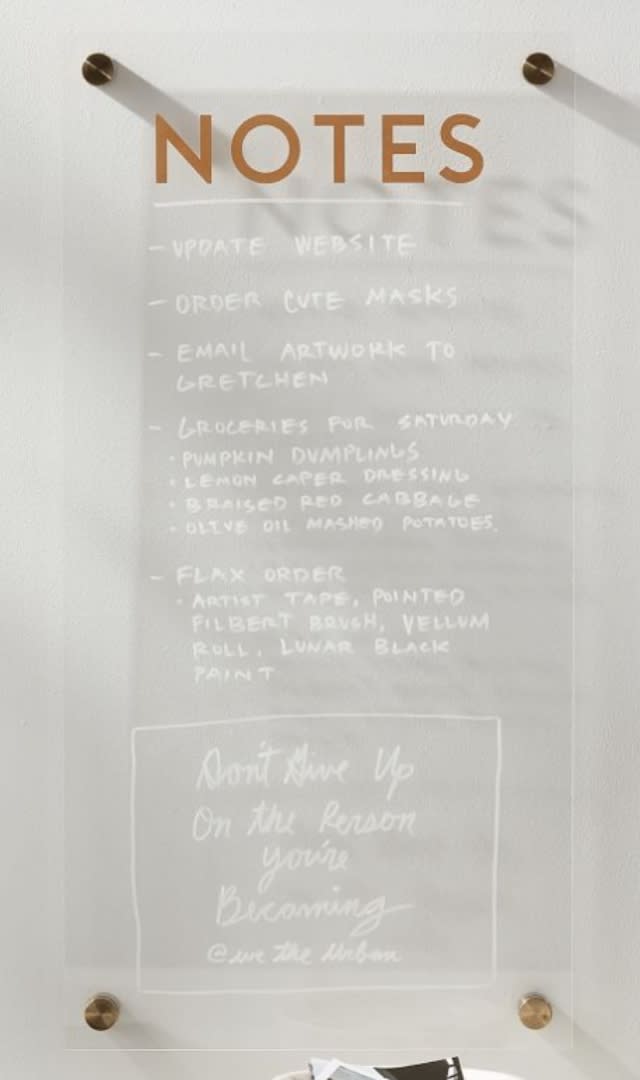 NOTES
- UPDATE WEBSITE
- ORDER CUTE MASKS
- EMAIL ARTWORK TO
GRETCHEN
- GROCERIES FOR SATURDAY
• PUMPKIN DUMPLINGS
• LEMON CAPER DRESSING
• BRAISED RED CABBAGE
• OLIVE OIL MASHED POTATOES.
- FLAX ORDER
• ARTIST TAPE, POINTED
FILBERT BRUSH, VELLUM
ROLL, LUNAR BLACK
PAINT
Don't Give Up
On the Person
You're
Becoming
@we the Urban